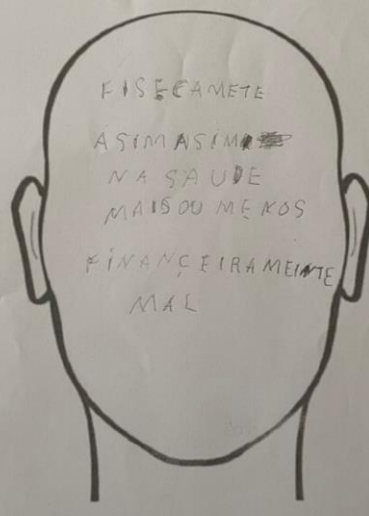 FISECAMETE
ASIMASIM
NA SAUDE
MAIS OU MENOS
FINANÇEIRAMEINTE
MAL